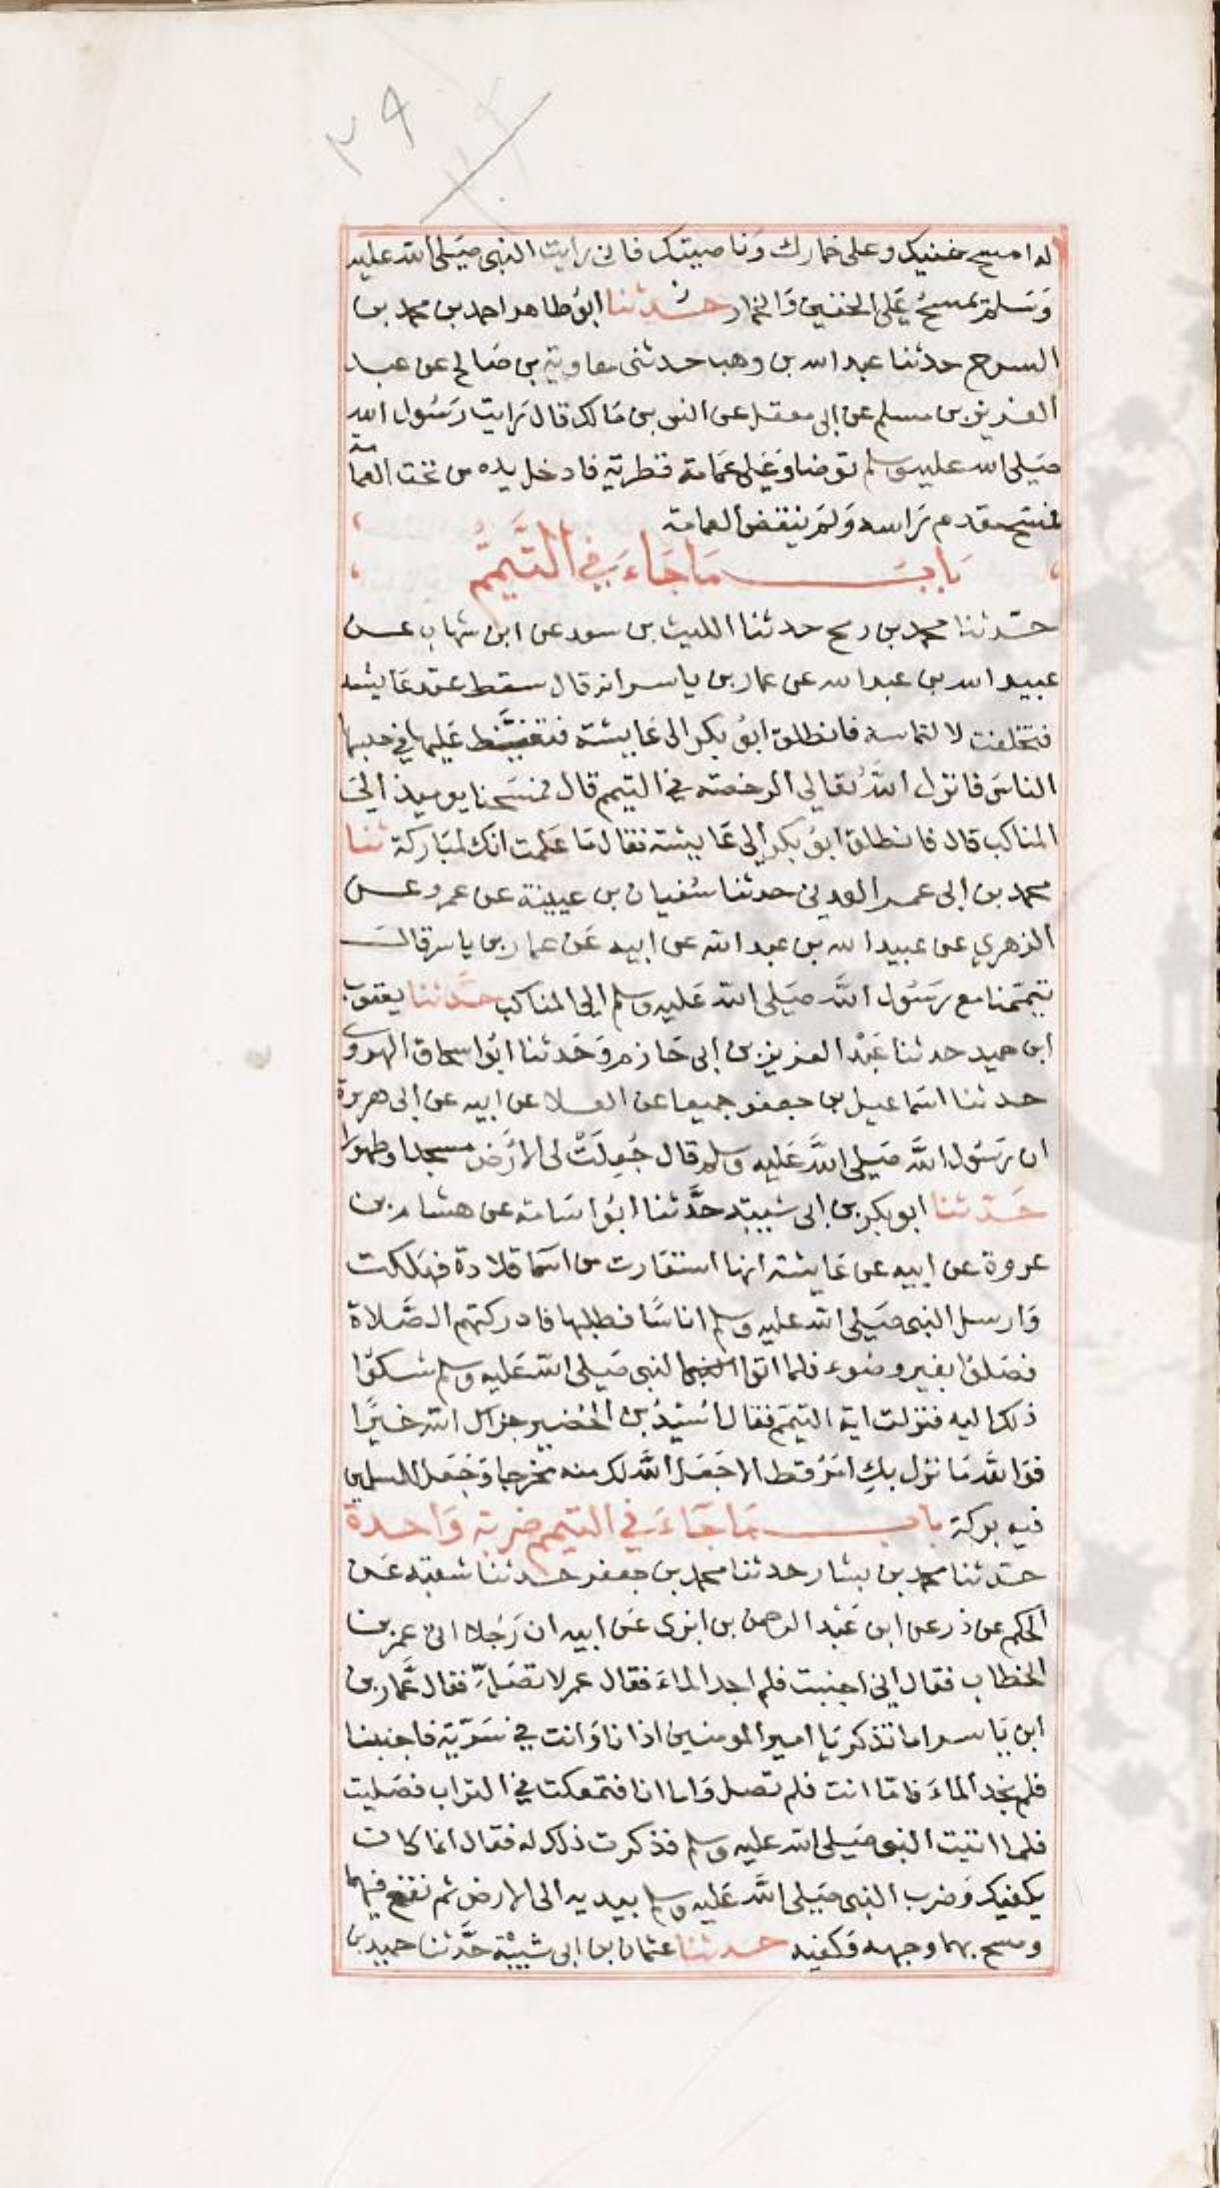 ٢٩
له امسح خفيك وعلى خمارك وناصيتك فاني رايت النبى صلى الله عليه
وسلم يمسح على الخفين والخمار حدثنا ابو طاهر احمد بن محمد بن
السرح حدثنا عبد الله بن وهب حدثنى معاوية بن صالح عن عبد
العزيز بن مسلم عن ابى معقل عن انس بن مالك قال رايت رسول الله
صلى الله عليه وسلم توضا وعليه عمامة قطرية فادخل يده من تحت العمامة
فمسح مقدم راسه ولم ينقض العمامة
باب ما جاء في التيمم
حدثنا محمد بن رمح حدثنا الليث بن سعد عن ابن شهاب عن
عبيد الله بن عبد الله عن عمار بن ياسر انه قال سقط عقد عايشه
فتخلفت لالتماسه فانطلق ابو بكر الى عايشة فتغيظ عليها في حبسها
الناس فانزل الله تعالى الرخصة في التيمم قال فمسحنا يوميذ الى
المناكب قال فانطلق ابو بكر الى عايشة فقال ما علمت انك لمباركة ثنا
محمد بن ابى عمر العدني حدثنا سفيان بن عيينة عن عمرو عن
الزهري عن عبيد الله بن عبد الله عن ابيه عن عمار بن ياسر قال
تيممنا مع رسول الله صلى الله عليه وسلم الى المناكب حدثنا يعقوب
ابن حميد حدثنا عبد العزيز بن ابى حازم وحدثنا ابو اسحاق الهروي
حدثنا اسماعيل بن جعفر جميعا عن العلا عن ابيه عن ابى هريرة
ان رسول الله صلى الله عليه وسلم قال جعلت لى الارض مسجدا وطهورا
حدثنا ابو بكر بن ابى شيبة حدثنا ابو اسامة عن هشام بن
عروة عن ابيه عن عايشة انها استعارت من اسما قلادة فهلكت
وارسل النبى صلى الله عليه وسلم اناسا فطلبها فادركتهم الصلاة
فصلوا بغير وضوء فلما اتوا النبى صلى الله عليه وسلم شكوا
ذلك اليه فنزلت اية التيمم فقال اسيد بن الحضير جزاك الله خيرا
فوالله ما نزل بك امر قط الا جعل الله لك منه مخرجا وجعل للمسلمين
فيه بركة باب ما جاء في التيمم ضربة واحدة
حدثنا محمد بن بشار حدثنا محمد بن جعفر حدثنا شعبة عن
الحكم عن ذر عن ابن عبد الرحمن بن ابزى عن ابيه ان رجلا اتى عمر بن
الخطاب فقال اني اجنبت فلم اجد الماء فقال عمر لا تصل فقال عمار بن
ابن ياسر اما تذكر يا امير المومنين اذ انا وانت في سرية فاجنبنا
فلم نجد الماء فاما انت فلم تصل واما انا فتمعكت في التراب فصليت
فلما اتيت النبى صلى الله عليه وسلم فذكرت ذلك له فقال انما كان
يكفيك وضرب النبى صلى الله عليه وسلم بيديه الى الارض ثم نفخ فيهما
ومسح بهما وجهه وكفيه حدثنا عثمان بن ابى شيبة حدثنا حميد بن